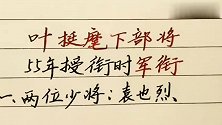 叶挺麾下部将
55年授衔时军衔
一、两位少将：袁也烈